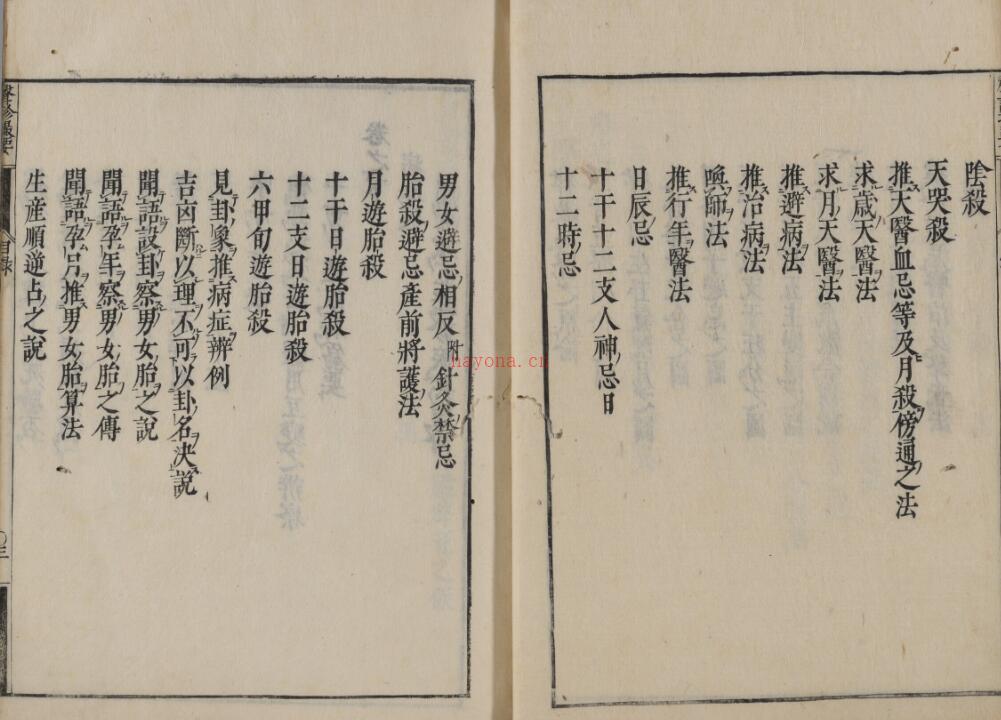 陰殺
天哭殺
推天醫血忌等及月殺傍通之法
求歳天醫法
求月天醫法
推避病法
推治病法
喚師法
推行年醫法
日辰忌
十干十二支人神忌日
十二時忌
男女避忌相反附針灸禁忌
胎殺避忌產前將護法
月遊胎殺
十干日遊胎殺
十二支日遊胎殺
六甲旬遊胎殺
見卦象推病症辨例
吉凶斷以理不可以卦名決説
聞語設卦察男女胎之説
聞語孕年察男女胎之傳
聞語孕月推男女胎算法
生産順逆占之説
目録
三
hayona.cn